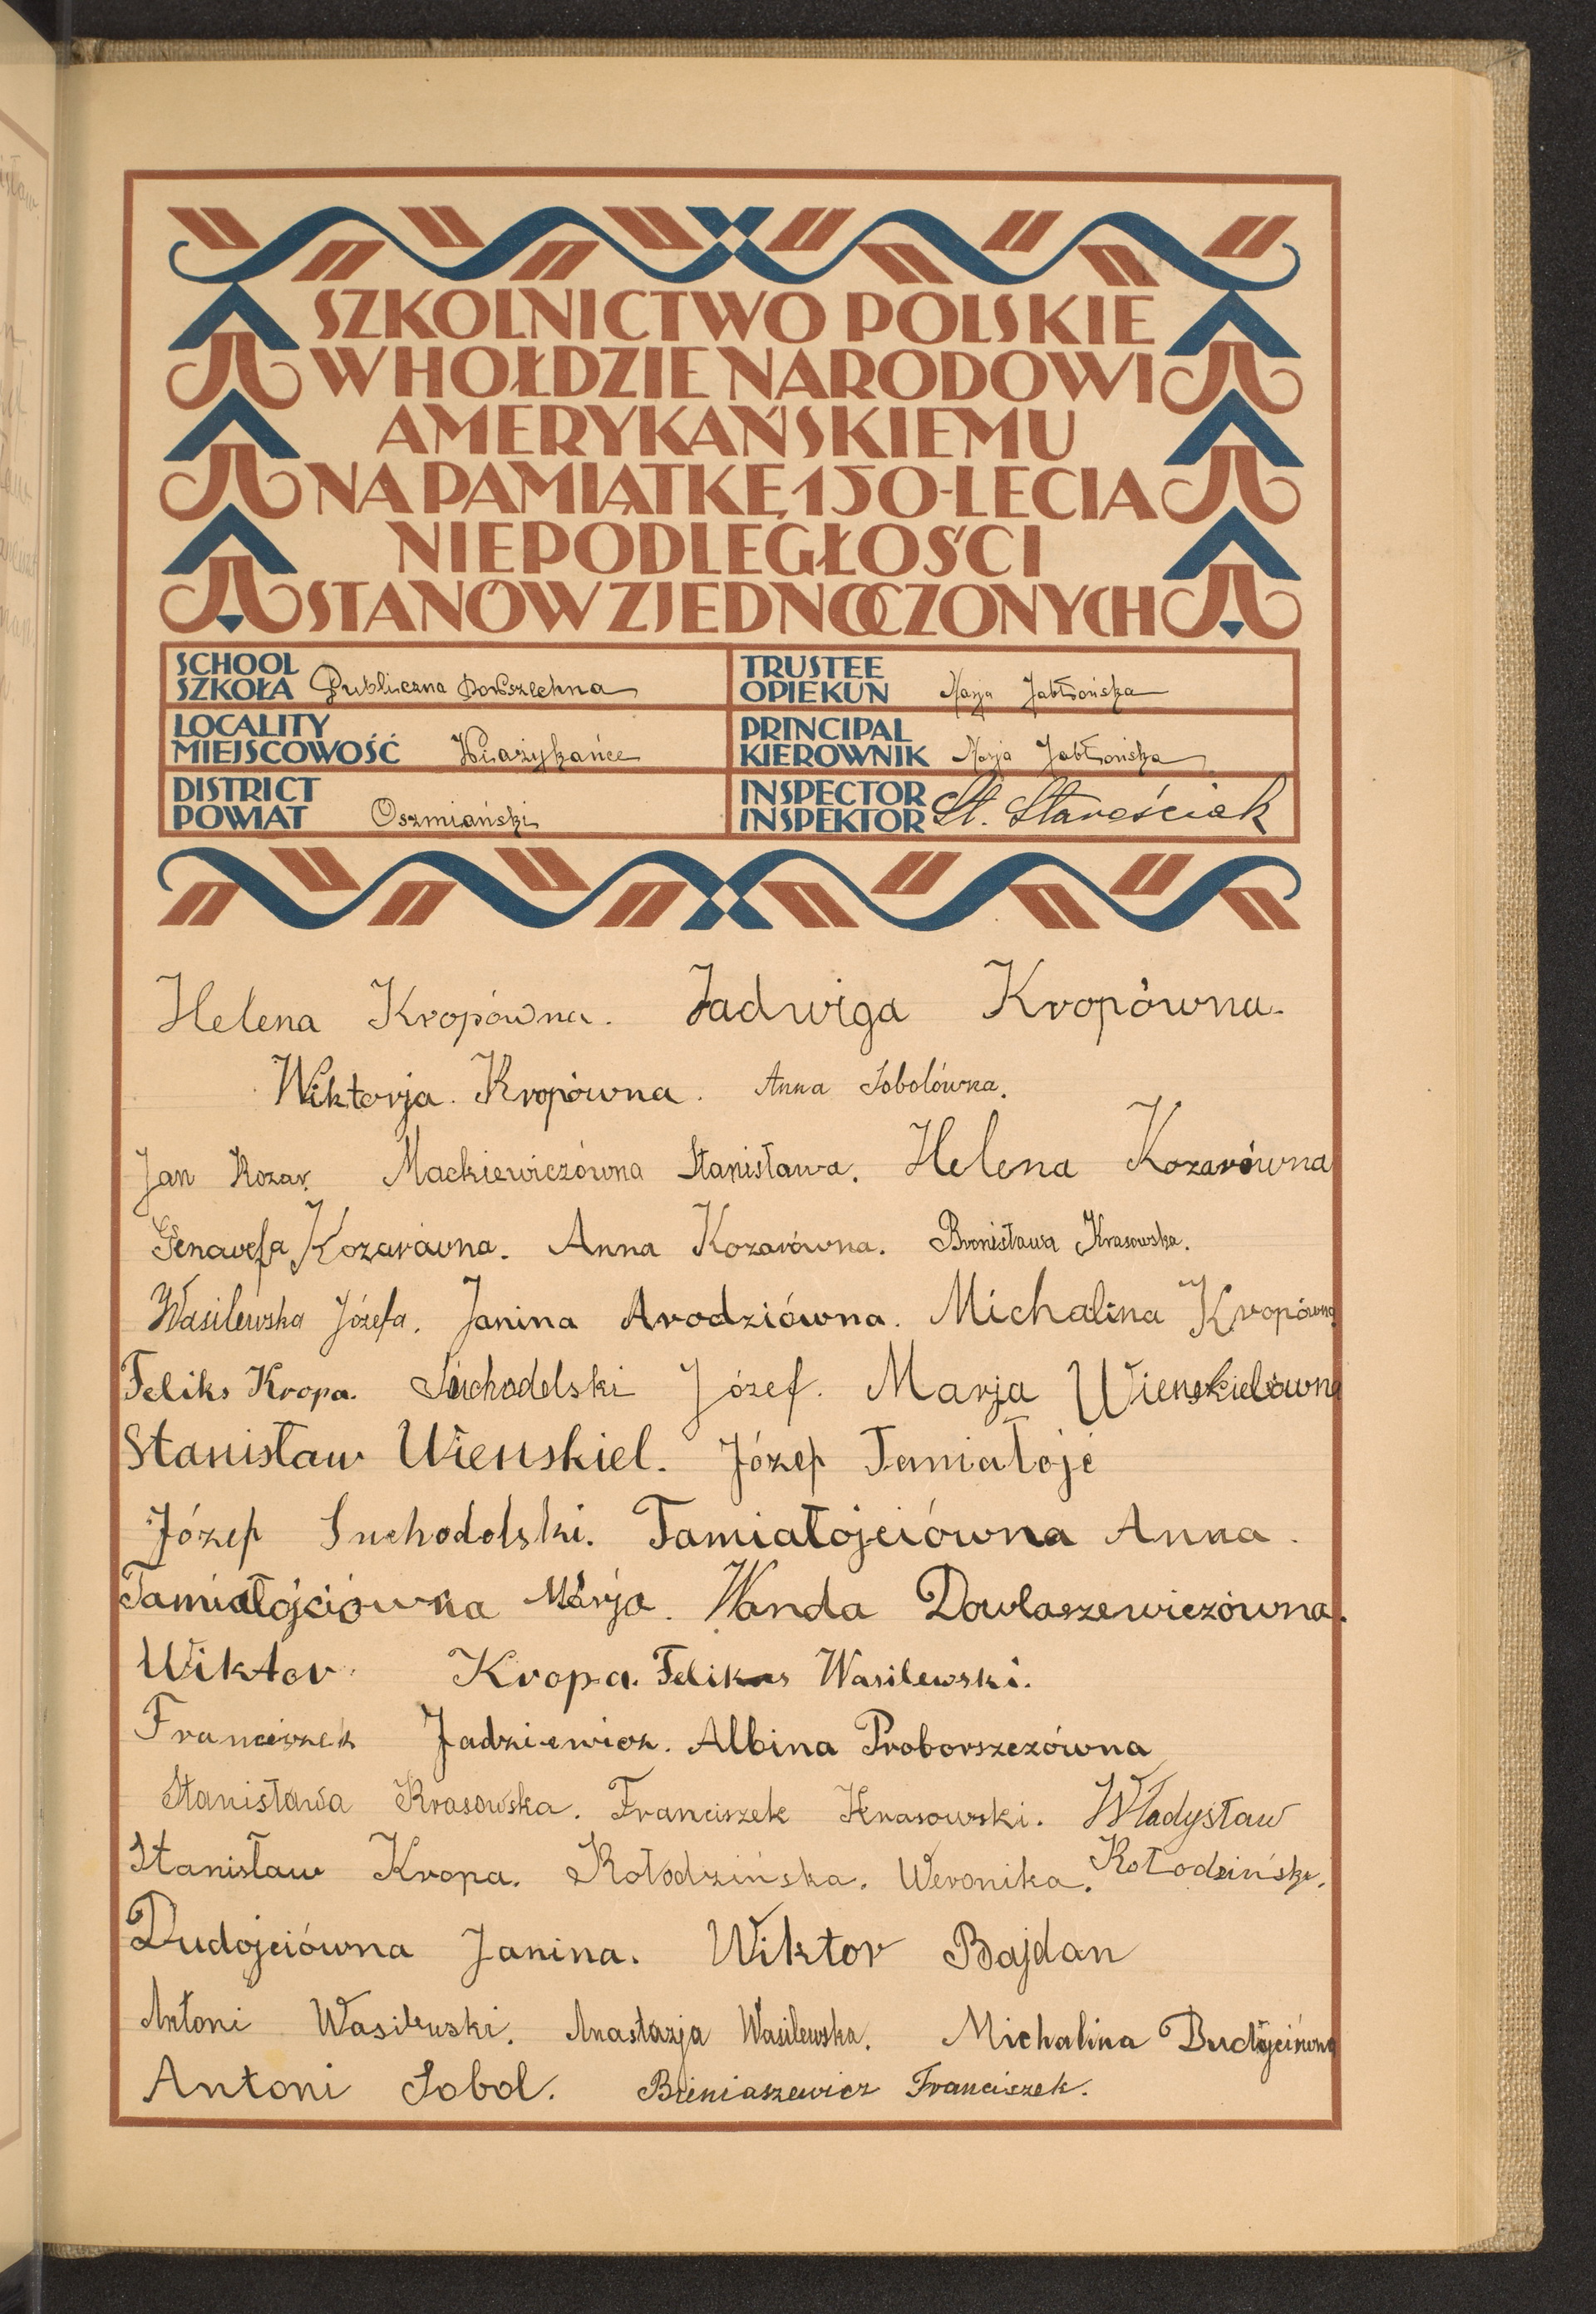 SZKOLNICTWO POLSKIE
W HOŁDZIE NARODOWI
AMERYKAŃSKIEMU
NA PAMIĄTKĘ 150-LECIA
NIEPODLEGŁOŚCI
STANÓW ZJEDNOCZONYCH
SCHOOL
SZKOŁA Publiczna Powszechna
TRUSTEE
OPIEKUN Marja Jabłońska
LOCALITY
MIEJSCOWOŚĆ Wiażykańce
PRINCIPAL
KIEROWNIK Marja Jabłońska
DISTRICT
POWIAT Oszmiański
INSPECTOR
INSPEKTOR St. Starościak
Helena Kropówna. Jadwiga Kropówna.
Wiktorja. Kropówna. Anna Sobolówna.
Jan Kozar. Mackiewiczówna Stanisława. Helena Kozarówna
Genawefa Kozarówna. Anna Kozarówna. Bronisława Krasowska.
Wasilewska Józefa. Janina Arodziówna. Michalina Kropówna
Feliks Kropa. Suchodolski Józef. Marja Wienskielówna
Stanisław Wienskiel. Józep Tamiałojć
Józep Suchodolski. Tamiałojciówna Anna.
Tamiałojciówna Marja. Wanda Dowlaszewiczówna.
Wiktor Kropa. Feliks Wasilewski.
Franciszek Jadziewicz. Albina Proborszczówna
Stanisława Krasowska. Franciszek Krasowski. Władysław
Stanisław Kropa. Kołodzińska. Weronika. Kołodzińsky.
Dudojciówna Janina. Wiktor Bajdan
Antoni Wasilewski. Anastazja Wasilewska. Michalina Dudojciówna
Antoni Sobol. Bieniaszewicz Franciszek.